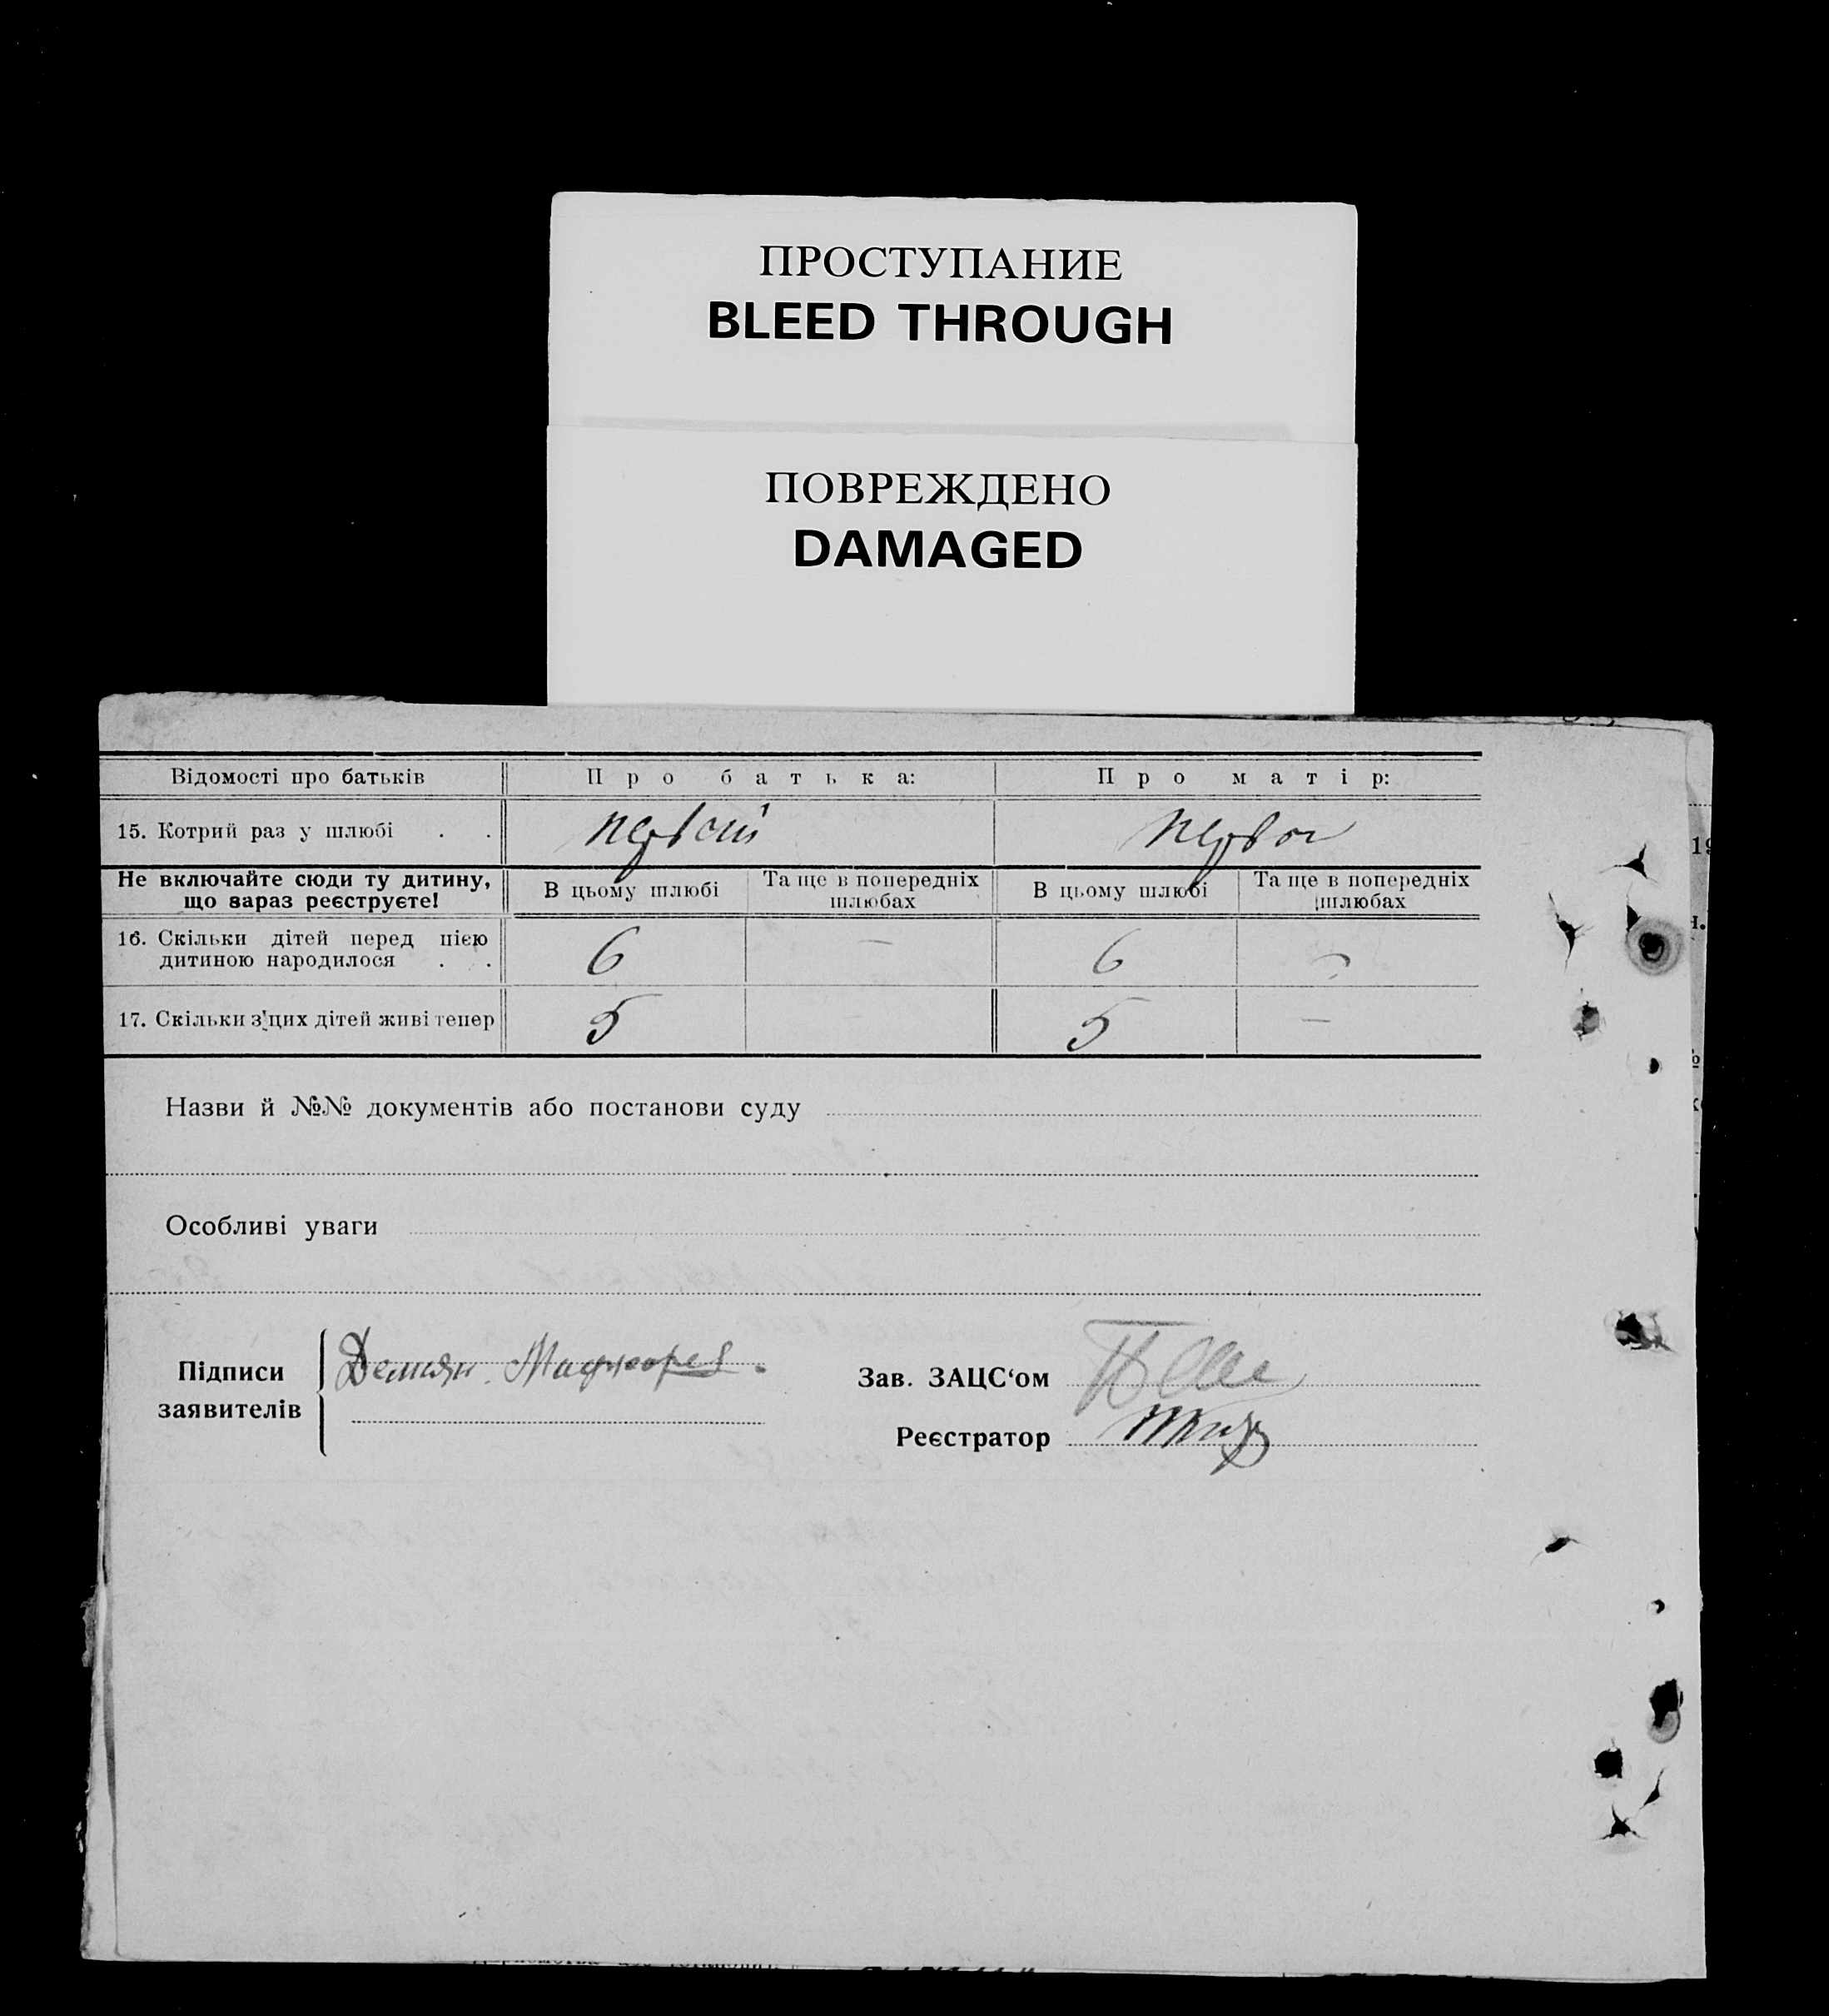 ПРОСТУПАНИЕ
BLEED THROUGH
ПОВРЕЖДЕНО
DAMAGED
Відомості про батьків Про батька: Про матір:
15. Котрий раз у шлюбі . . первый
Не включайте сюди ту дитину, що зараз реєструєте!
В цьому шлюбі Та ще в попередніх шлюбах В цьому шлюбі Та ще в попередніх шлюбах
16. Скільки дітей перед цією
дитиною народилося . . 6 — 6 —
17. Скільки з'цих дітей живі тепер 5 5 —
Назви й №№ документів або постанови суду
Особливі уваги
Підписи
заявителів
Демьян
Зав. ЗАЦС‘ом
Реєстратор